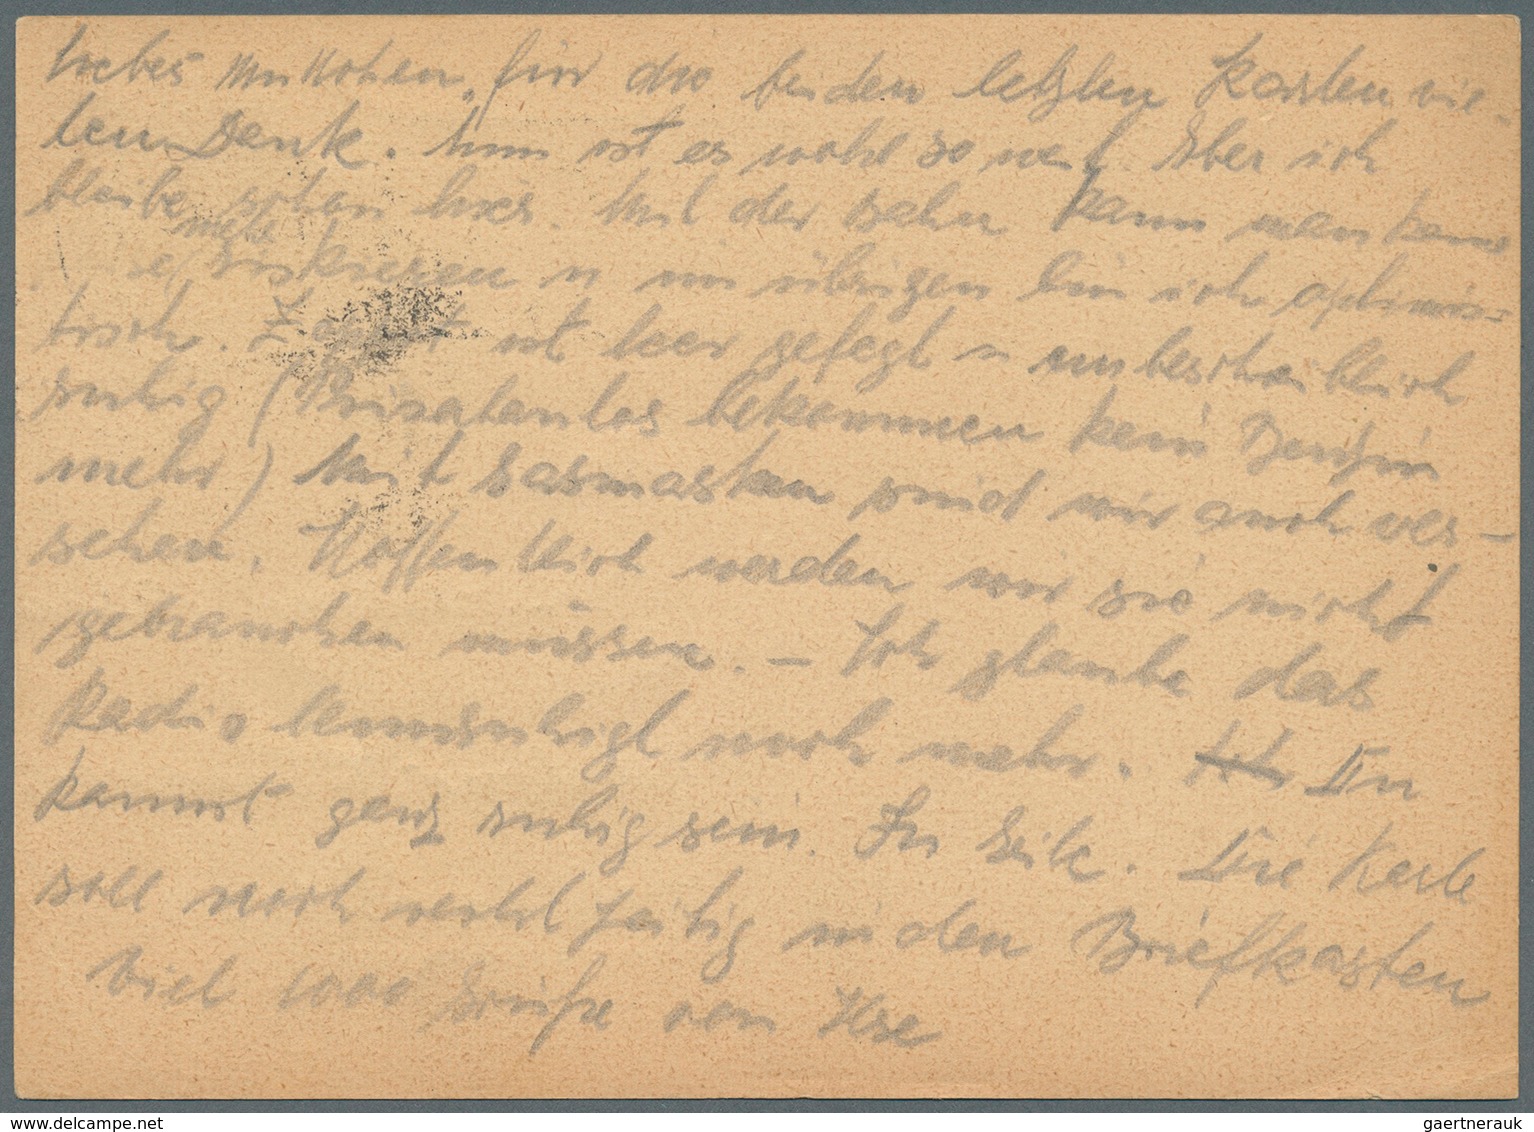 Liebes Muttchen, für die beiden letzten Karten vie-
len Dank. Nun ist es wohl so weit. Aber ich
bleibe schon hier. Mit der Bahn kann man keine
mehr
riskieren u im übrigen bin ich optimis=
tisch. ist leer gefegt u unbeschreiblich
ruhig (Privatautos bekommen kein Benzin
mehr) Mit Gasmasken sind wir auch ver-
sehen. Hoffentlich werden wir sie nicht
gebrauchen müssen. - Ich glaube das
Radio beunruhigt noch mehr. Ich Du
kannst ganz ruhig sein. In Eile. Die Karte
soll noch rechtzeitig in den Briefkasten
Viel 1000 Grüße von Ilse
gaertnerauk